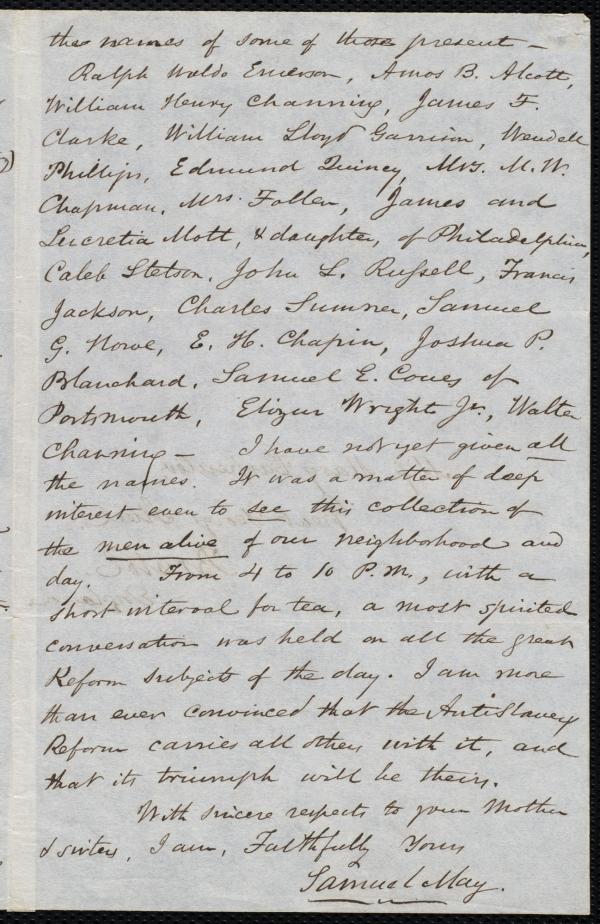 the names of some of those present –
Ralph Waldo Emerson, Amos B. Alcott,
William Henry Channing, James F.
Clarke, William Lloyd Garrison, Wendell
Phillips, Edmund Quincy, Mrs. M. W.
Chapman, Mrs. Follen, James and
Lucretia Mott, & daughter, of Philadelphia,
Caleb Stetson, John L. Russell, Francis
Jackson, Charles Sumner, Samuel
G. Howe, E. H. Chapin, Joshua P.
Blanchard, Samuel E. Coues of
Portsmouth, Elizur Wright Jr., Walter
Channing – I have not yet given all
the names. It was a matter of deep
interest even to see this collection of
the men alive of our neighborhood and
day. From 4 to 10 P.M., with a
short interval for tea, a most spirited
conversation was held on all the great
Reform subjects of the day. I am more
than ever convinced that the AntiSlavery
Reform carries all others with it, and
that its triumph will be theirs.
With sincere respects to your Mother
& sisters, I am, Faithfully Yours
Samuel May.